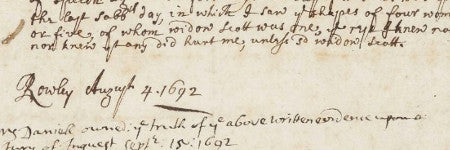 the last sabbath day, in which I saw ye shapes of four wom
or five, of whom widow Scott was one, ye rest I knew no
nor knew yt any did hurt me, unless sd widow Scott.
Rowley August 4. 1692
Daniell owned: ye truth of ye above written evidence upon
Jury of Inquest Septr. 15: 1692